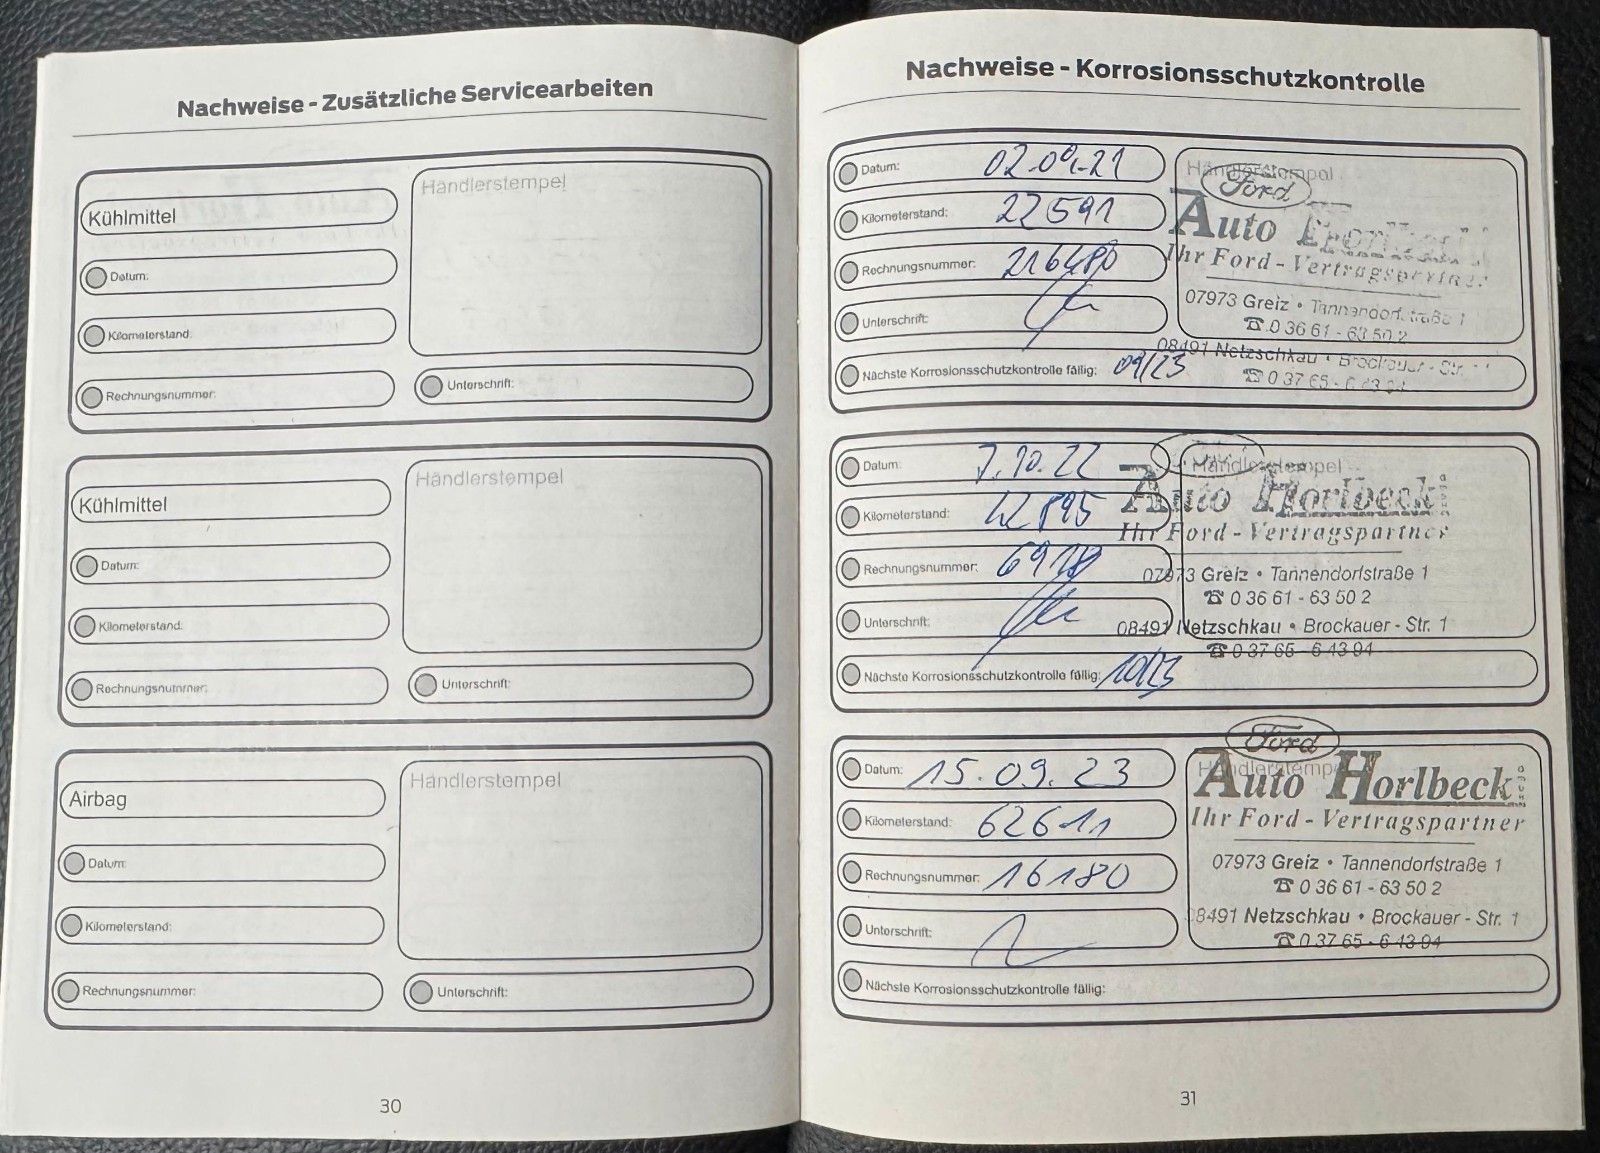 Nachweise - Zusätzliche Servicearbeiten
Kühlmittel
Händlerstempel
Datum:
Kilometerstand:
Rechnungsnummer:
Unterschrift:
Kühlmittel
Händlerstempel
Datum:
Kilometerstand:
Rechnungsnummer:
Unterschrift:
Airbag
Händlerstempel
Datum:
Kilometerstand:
Rechnungsnummer:
Unterschrift:
30
Nachweise - Korrosionsschutzkontrolle
Datum: 02.09.21
Kilometerstand: 22591
Rechnungsnummer:
Unterschrift:
Nächste Korrosionsschutzkontrolle fällig: 09/23
Händlerstempel
Ford
Auto Horlbeck
Ihr Ford - Vertragspartner
07973 Greiz • Tannendorfstraße 1
☎ 0 36 61 - 63 50 2
08491 Netzschkau • Brockauer - Str. 1
☎ 0 37 65 - 6 43 94
Datum: 7.10.22
Kilometerstand: 42895
Rechnungsnummer:
Unterschrift:
Nächste Korrosionsschutzkontrolle fällig: 10/23
Händlerstempel
Auto Horlbeck
Ihr Ford - Vertragspartner
07973 Greiz • Tannendorfstraße 1
☎ 0 36 61 - 63 50 2
08491 Netzschkau • Brockauer - Str. 1
☎ 0 37 65 - 6 43 94
Datum: 15.09.23
Kilometerstand: 62611
Rechnungsnummer: 16180
Unterschrift:
Nächste Korrosionsschutzkontrolle fällig:
Händlerstempel
Ford
Auto Horlbeck
Ihr Ford - Vertragspartner
07973 Greiz • Tannendorfstraße 1
☎ 0 36 61 - 63 50 2
08491 Netzschkau • Brockauer - Str. 1
☎ 0 37 65 - 6 43 94
31